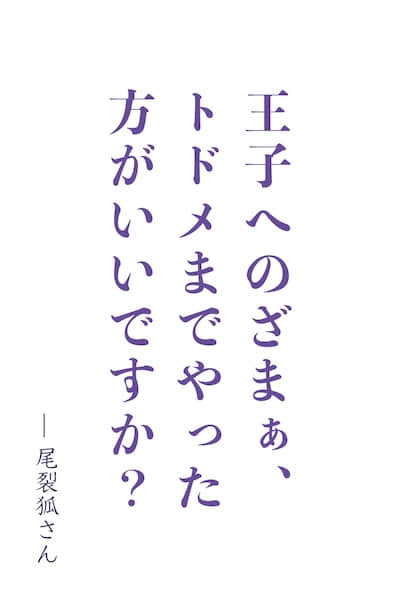 王子へのざまぁ、
トドメまでやった
方がいいですか？
― 尾裂狐さん